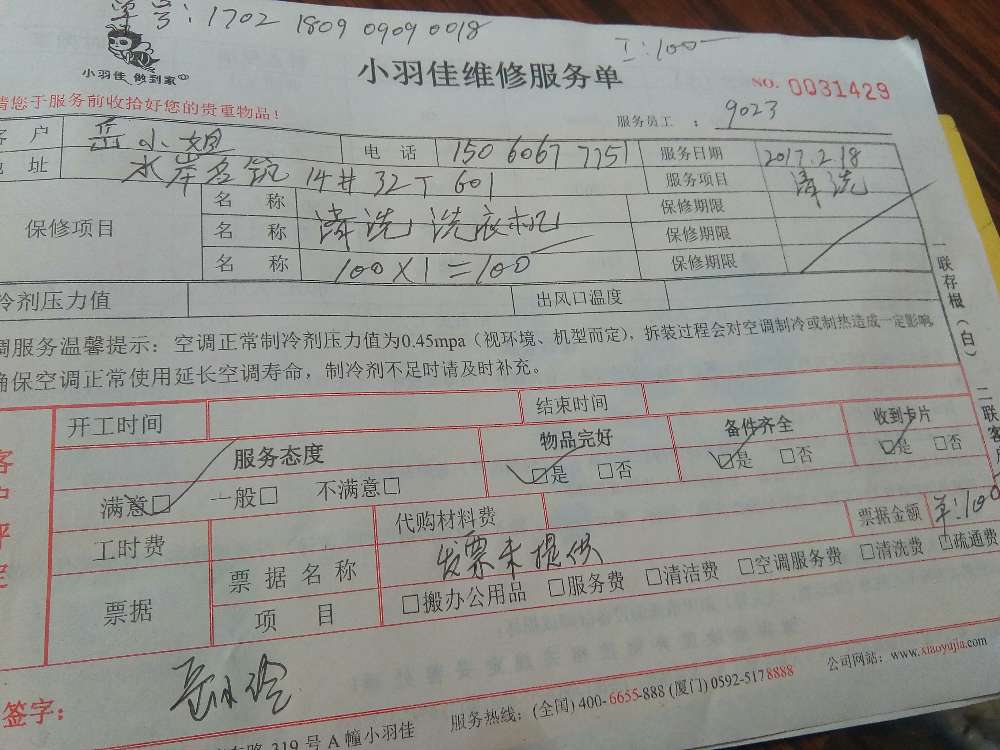 单号：1702 1809 0909 0018
工：100
小羽佳 做到家
小羽佳维修服务单
NO. 0031429
请您于服务前收拾好您的贵重物品！
服务员工 ： 9023
客 户 岳小姐 电 话 150 6067 7751 服务日期 2017.2.18
地 址 水岸名筑 14# 32T 601 服务项目 清洗
保修项目 名 称 清洗洗衣机 保修期限
名 称 保修期限
名 称 100×1=100 保修期限
冷剂压力值 出风口温度
调服务温馨提示：空调正常制冷剂压力值为0.45mpa（视环境、机型而定），拆装过程会对空调制冷或制热造成一定影响
确保空调正常使用延长空调寿命，制冷剂不足时请及时补充。
一联存根（白） 二联客户
客户评定
开工时间 结束时间
服务态度 物品完好 备件齐全 收到卡片
满意□ 一般□ 不满意□ □是 □否 □是 □否 □是 □否
工时费 代购材料费 票据金额 羊:100
票据 票据名称 发票未提供
项 目 □搬办公用品 □服务费 □清洁费 □空调服务费 □清洗费 □疏通费
签字：
319 号 A 幢小羽佳 服务热线：(全国) 400-6655-888 (厦门) 0592-5178888 公司网站：www.xiaoyujia.com